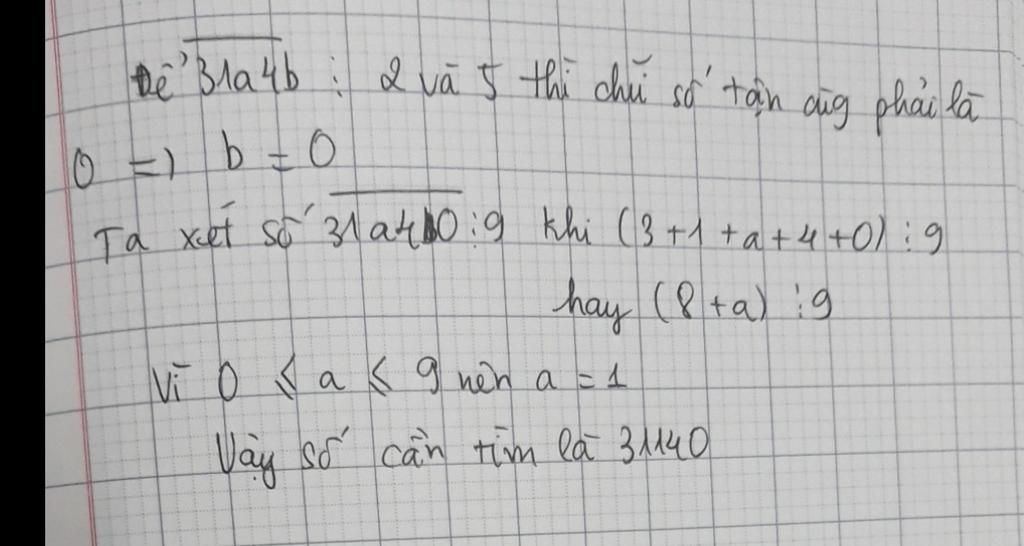 Để 31a4b ⋮ 2 và 5 thì chữ số tận cùg phải là
0 => b = 0
Ta xét số 31a40 ⋮ 9 khi (3+1+a+4+0) ⋮ 9
hay (8+a) ⋮ 9
Vì 0 ≤ a ≤ 9 nên a = 1
Vậy số cần tìm là 31140